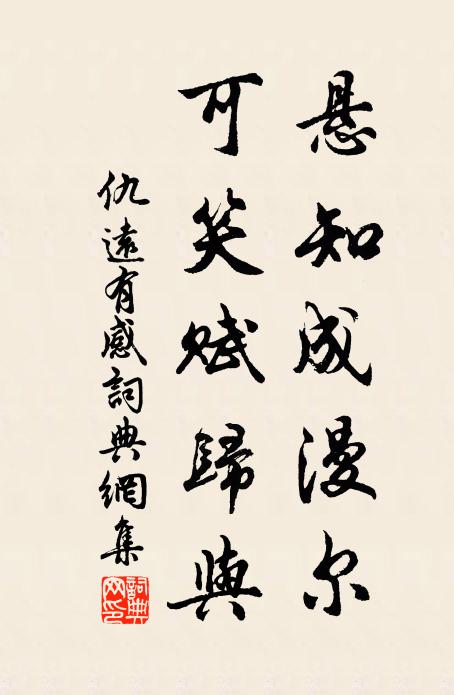 悬知成漫尔
可笑赋歸與
仇遠有感詞典網集
詞典网印